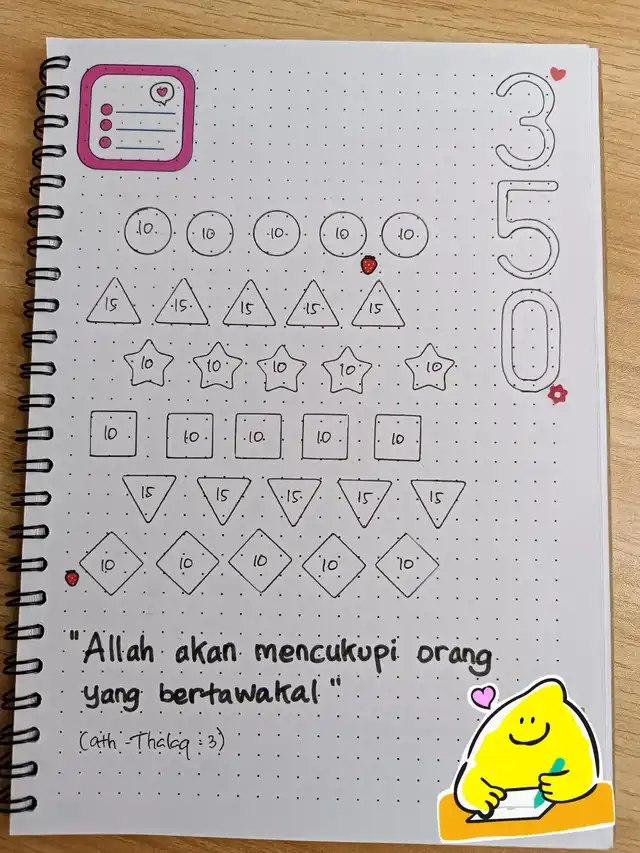 350
10 10 10 10 10
15 15 15 15 15
10 10 10 10 10
10 10 10 10 10
15 15 15 15 15
10 10 10 10 10
"Allah akan mencukupi orang
yang bertawakal"
(ath-Thalaq:3)